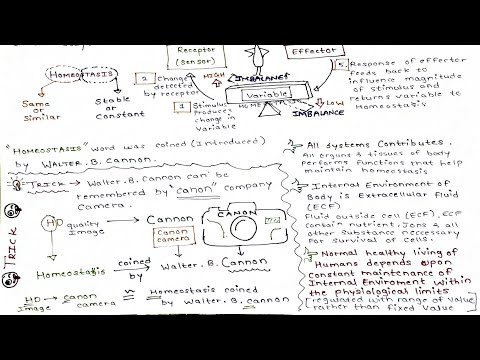 Receptor
(Sensor)
Effector
HOMEOSTASIS
Same
or
Similar
Stable
or
Constant
2 Change
detected
by receptor
HIGH
IMBALANCE
Variable
1 Stimulus
produces
change in
variable
LOW
IMBALANCE
5. Response of effector
feeds back to
influence magnitude
of stimulus and
returns variable to
Homeostasis
"HOMEOSTASIS" word was coined (Introduced)
by WALTER. B. Cannon.
TRICK → Walter. B. Cannon can be
remembered by "canon" company
Camera.
TRICK
HD quality
Image
Cannon
Canon
camera
CANON
Homeostasis coined
by Walter. B. Cannon
HD → Canon
Image camera
≈ Homeostasis coined
by Walter. B. Cannon
All Systems Contributes.
All organs & tissues of body
performs functions that help
maintain homeostasis
Internal Environment of
Body is Extracellular Fluid
(ECF)
Fluid outside cell (ECF). ECF
contain nutrient, Ions & all
other Substance neccessary
for survival of cells.
Normal healthy living of
Humans depends upon
Constant maintenance of
Internal Enviroment within
the physiological limits
[regulated with range of value
rather than fixed value]